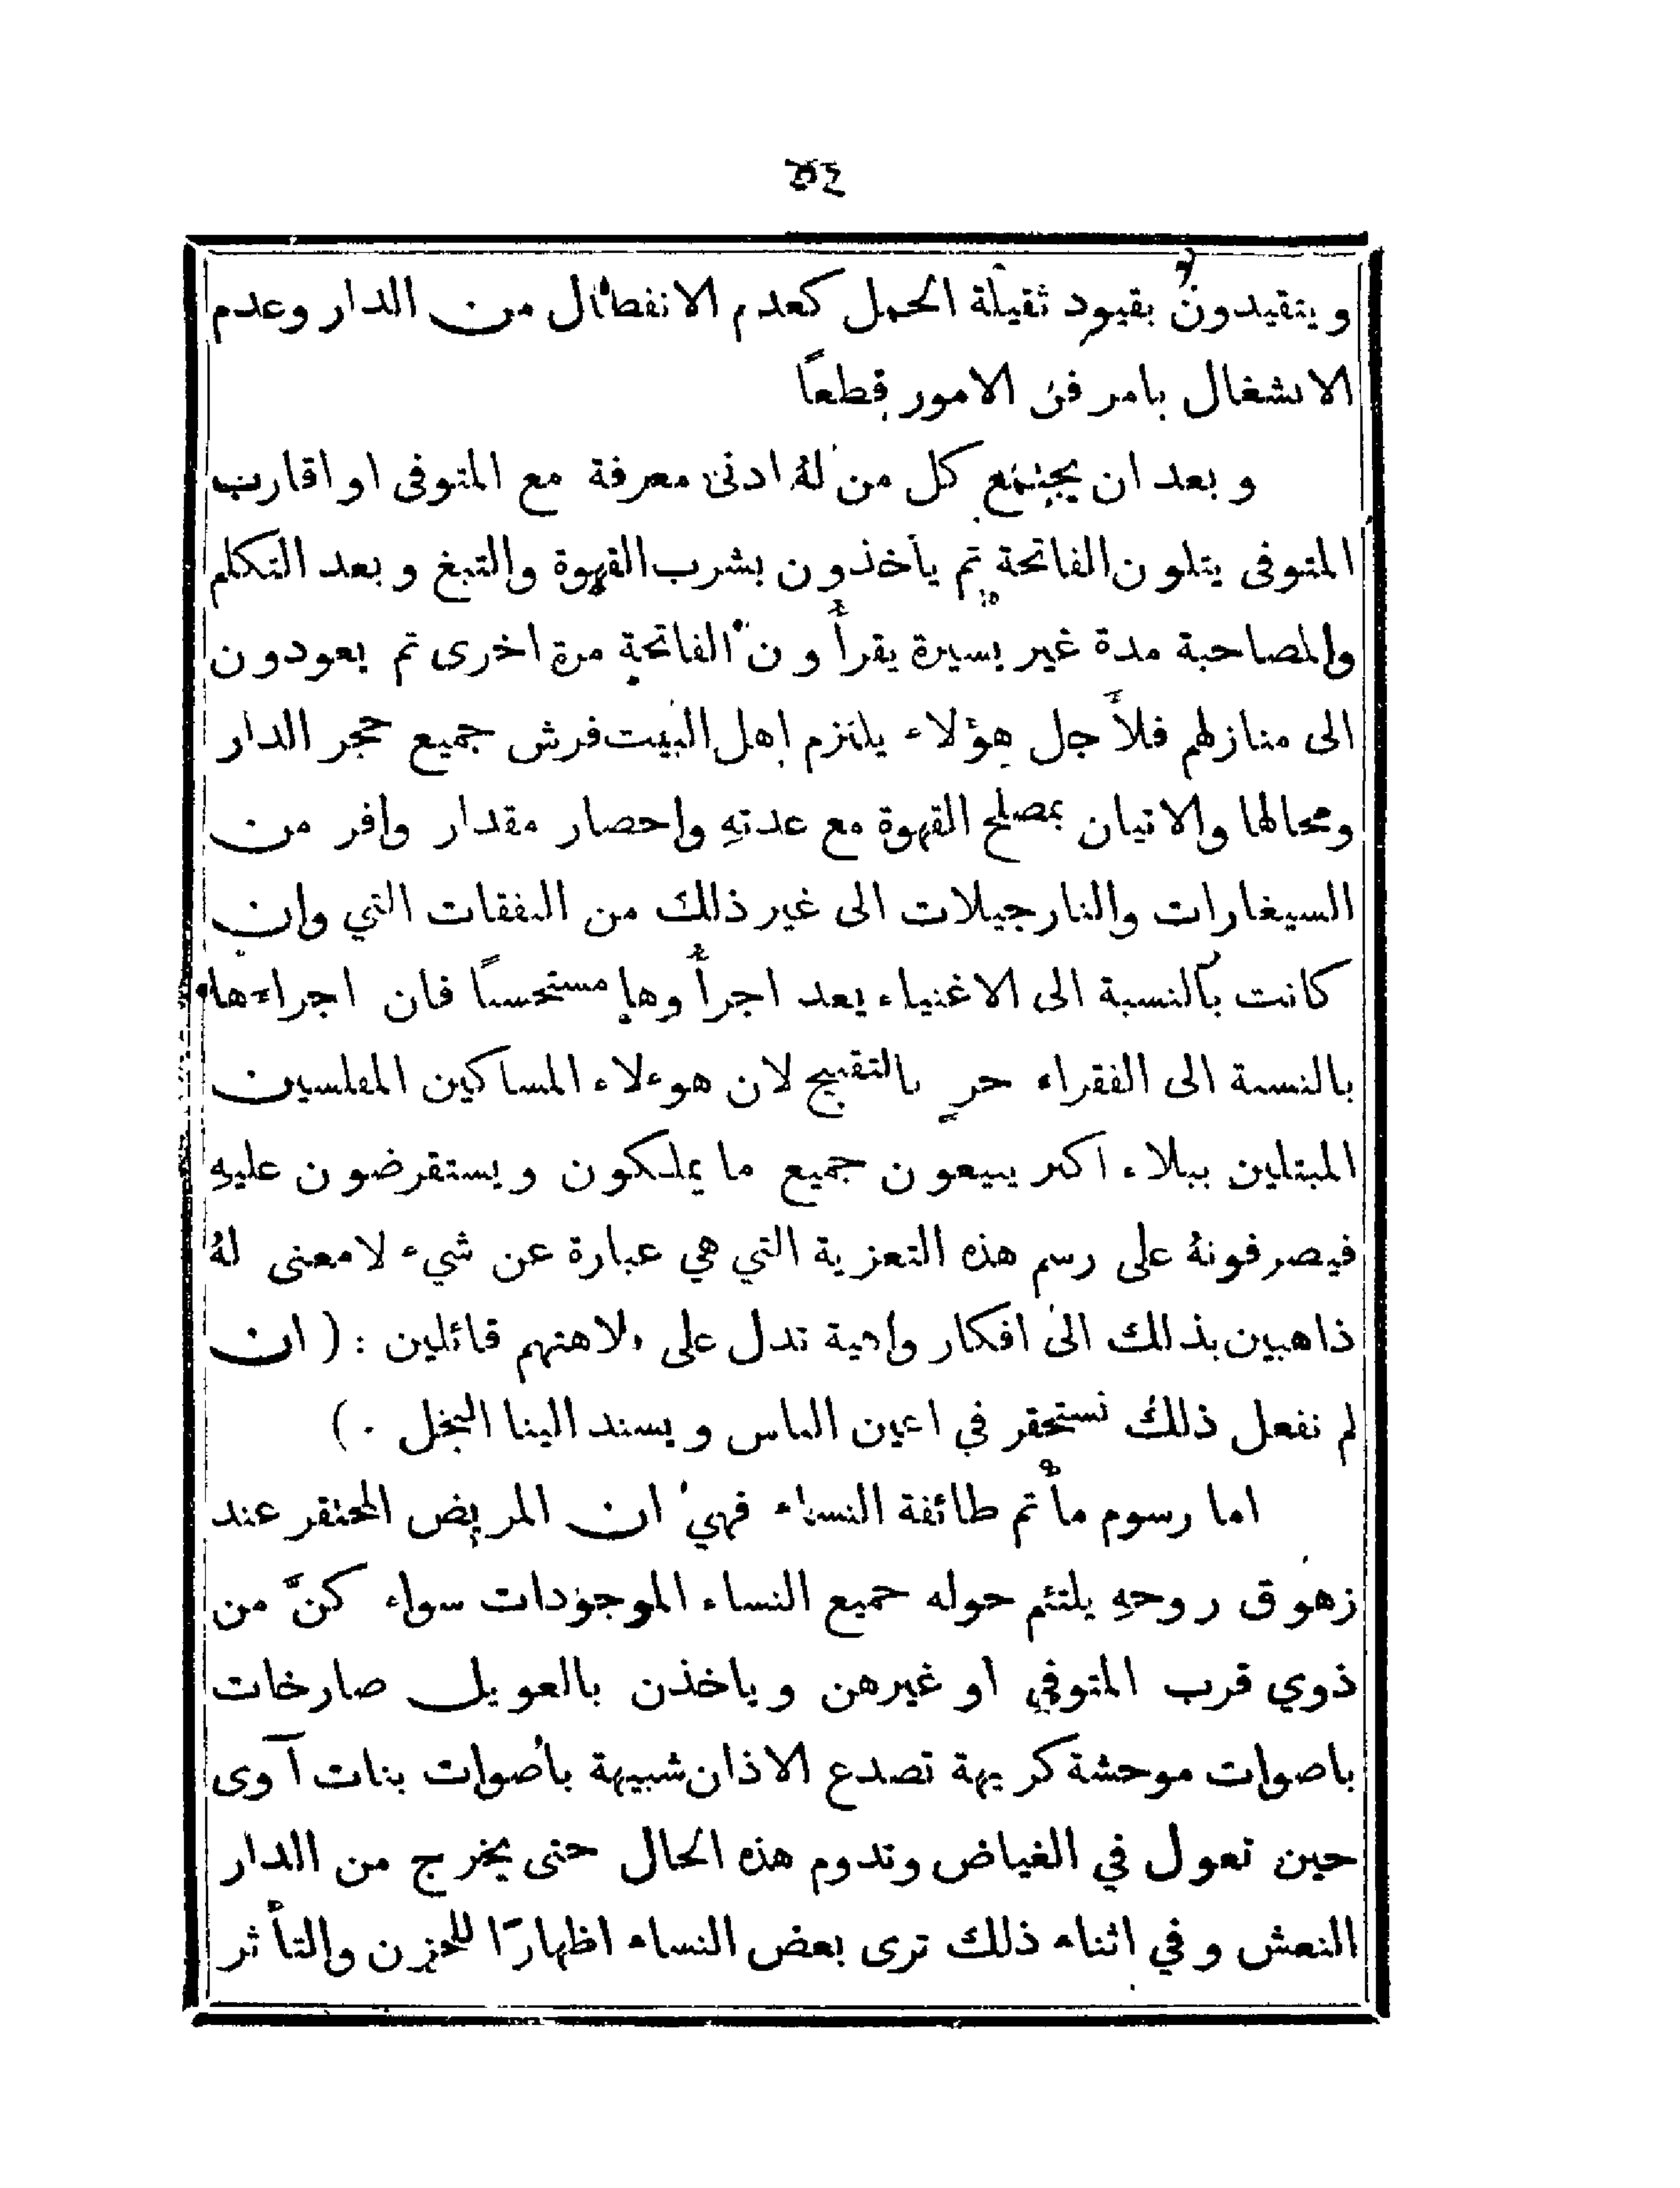 ٥٤
ويتقيدون بقيود ثقيلة الحمل كعدم الانفصال من الدار وعدم
الانشغال بامر من الامور قطعاً
وبعد ان يجتمع كل من لهُ ادنى معرفة مع المتوفى او اقارب
المتوفى يتلون الفاتحة ثم يأخذون بشرب القهوة والتبغ وبعد التكلم
والمصاحبة مدة غير يسيرة يقرأون الفاتحة مرة اخرى ثم يعودون
الى منازلهم فلأجل هؤلاء يلتزم اهل البيت فرش جميع حجر الدار
ومحالها والاتيان بمصلح القهوة مع عدتهِ واحضار مقدار وافر من
السيغارات والنارجيلات الى غير ذلك من النفقات التي وان
كانت بالنسبة الى الاغنياء يعد اجرأوها مستحسناً فان اجراءها
بالنسبة الى الفقراء حرٍ بالتقبيح لان هوءلاء المساكين المفلسين
المبتلين ببلاء اكبر يبيعون جميع ما يملكون ويستقرضون عليهِ
فيصرفونهُ على رسم هذه التعزية التي هي عبارة عن شيء لا معنى لهُ
ذاهبين بذلك الى افكار واهية تدل على بلاهتهم قائلين : ( ان
لم نفعل ذلك نستحقر في اعين الناس ويسند الينا البخل . )
اما رسوم مأتم طائفة النساء فهي ان المريض المحتقر عند
زهوق روحهِ يلتئم حوله جميع النساء الموجودات سواء كنَّ من
ذوي قرب المتوفي او غيرهن وياخذن بالعويل صارخات
باصوات موحشة كريهة تصدع الاذان شبيهة بأصوات بنات آوى
حين تعول في الغياض وتدوم هذه الحال حتى يخرج من الدار
النعش وفي اثناء ذلك ترى بعض النساء اظهارًا للحزن والتأثر